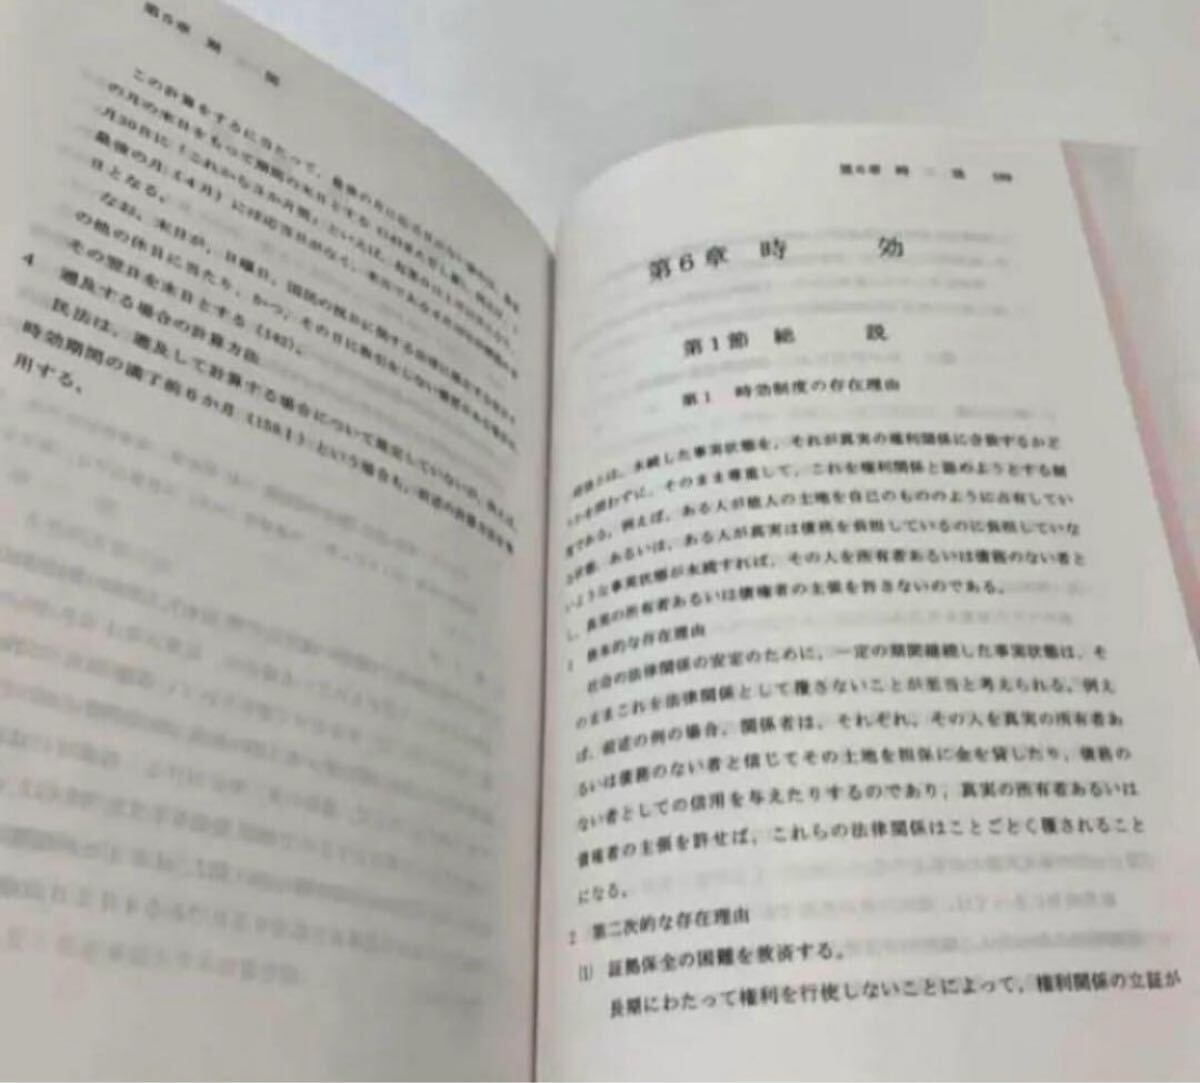 第5章 期 間
この計算をするに当たって、最後の月に応当日がない場合は、その
の月の末日をもって期間の末日とする
月30日に「これから3か月間」といえば、起算日は
最後の月(4月)に応当日がなく、末日である4月
日となる。
なお、末日が、日曜日、国民の祝日に関する法律に規定する休日そ
の他の休日に当たり、かつ、その日に取引をしない慣習がある場合は、
その翌日を末日とする(142)。
4 遡及する場合の計算方法
民法は、遡及して計算する場合について規定していないが、例えば、
時効期間の満了前6か月(158Ⅰ)という場合も、前述の計算方法を準
用する。
第6章 時 効
第6章 時 効
第1節 総 説
第1 時効制度の存在理由
時効とは、永続した事実状態を、それが真実の権利関係に合致するかど
うかを問わずに、そのまま尊重して、これを権利関係と認めようとする制
度である。例えば、ある人が他人の土地を自己のもののように占有してい
る状態、あるいは、ある人が真実は債務を負担しているのに負担していな
いような事実状態が永続すれば、その人を所有者あるいは債務のない者と
し、真実の所有者あるいは債権者の主張を許さないのである。
1 根本的な存在理由
社会の法律関係の安定のために、一定の期間継続した事実状態は、そ
のままこれを法律関係として覆さないことが至当と考えられる。例え
ば、前述の例の場合、関係者は、それぞれ、その人を真実の所有者あ
るいは債務のない者と信じてその土地を担保に金を貸したり、債務の
ない者としての信用を与えたりするのであり、真実の所有者あるいは
債権者の主張を許せば、これらの法律関係はことごとく覆されること
になる。
2 第二次的な存在理由
(1) 証拠保全の困難を救済する。
長期にわたって権利を行使しないことによって、権利関係の立証が